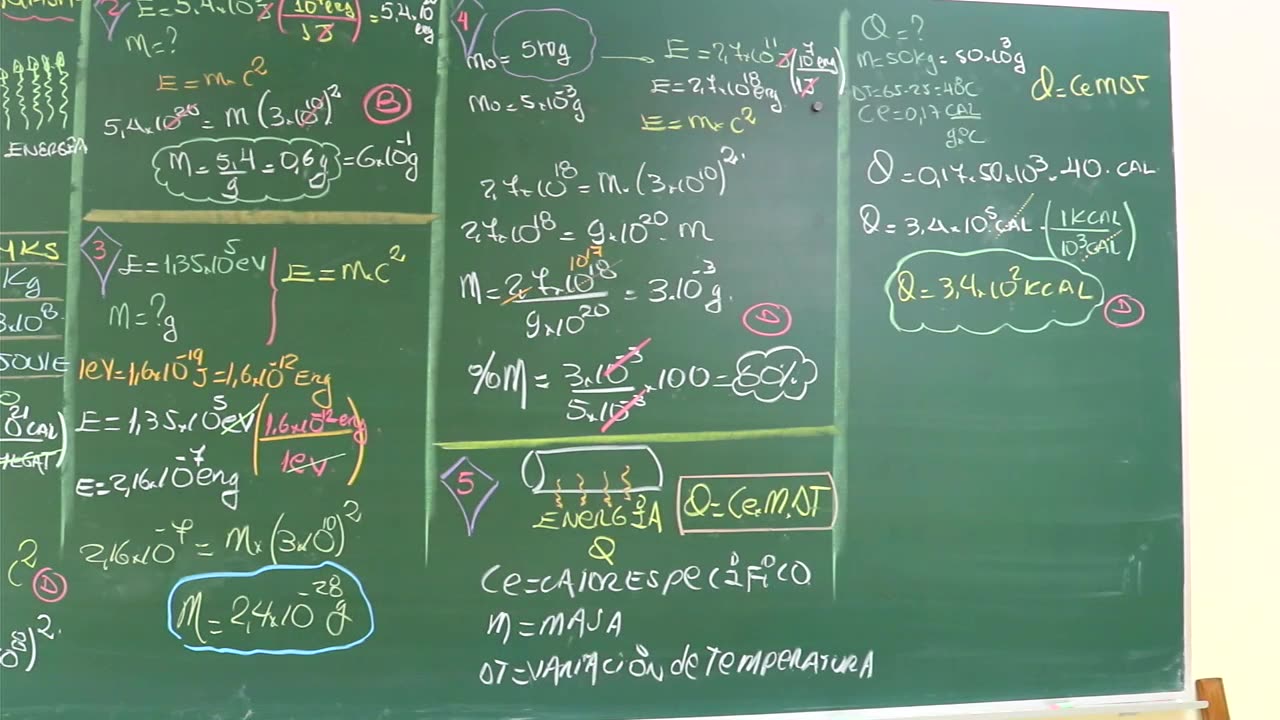 ENERGÍA
MKS
Kg
3x10⁸
JOULE
CAL
C²
D
2
E=5,4x10¹³J(10⁷erg/1J)=5,4x10²⁰erg
M=?
E=m.c²
5,4x10²⁰=M(3x10¹⁰)²
B
M=5,4/9=0,6g=6x10⁻¹g
3
E=1,35x10⁵eV
E=m.c²
M=?g
1eV=1,6x10⁻¹⁹J=1,6x10⁻¹²Erg
E=1,35x10⁵eV(1,6x10⁻¹²erg/1eV)
E=2,16x10⁻⁷erg
2,16x10⁻⁷=Mx(3x10¹⁰)²
M=2,4x10⁻²⁸g
4
Mo=5mg
E=2,7x10¹¹J(10⁷erg/1J)
E=2,7x10¹⁸erg
Mo=5x10⁻³g
E=m.c²
2,7x10¹⁸=m.(3x10¹⁰)²
2,7x10¹⁸=9x10²⁰.m
M=2,7x10¹⁸/9x10²⁰=3.10⁻³g.
10¹⁷
D
%M=3x10⁻³/5x10⁻³x100=60%
5
ENERGÍA
Q
Q=Ce.M.ΔT
Ce=CALOR ESPECÍFICO
M=MASA
ΔT=VARIACIÓN de TEMPERATURA
Q=?
m=50kg=50x10³g
ΔT=65-25=40°C
Ce=0,17 CAL/g°C
Q=CeMΔT
Q=0,17.50x10³.40.CAL
Q=3,4x10⁵CAL.(1KCAL/10³CAL)
Q=3,4x10²KCAL
D